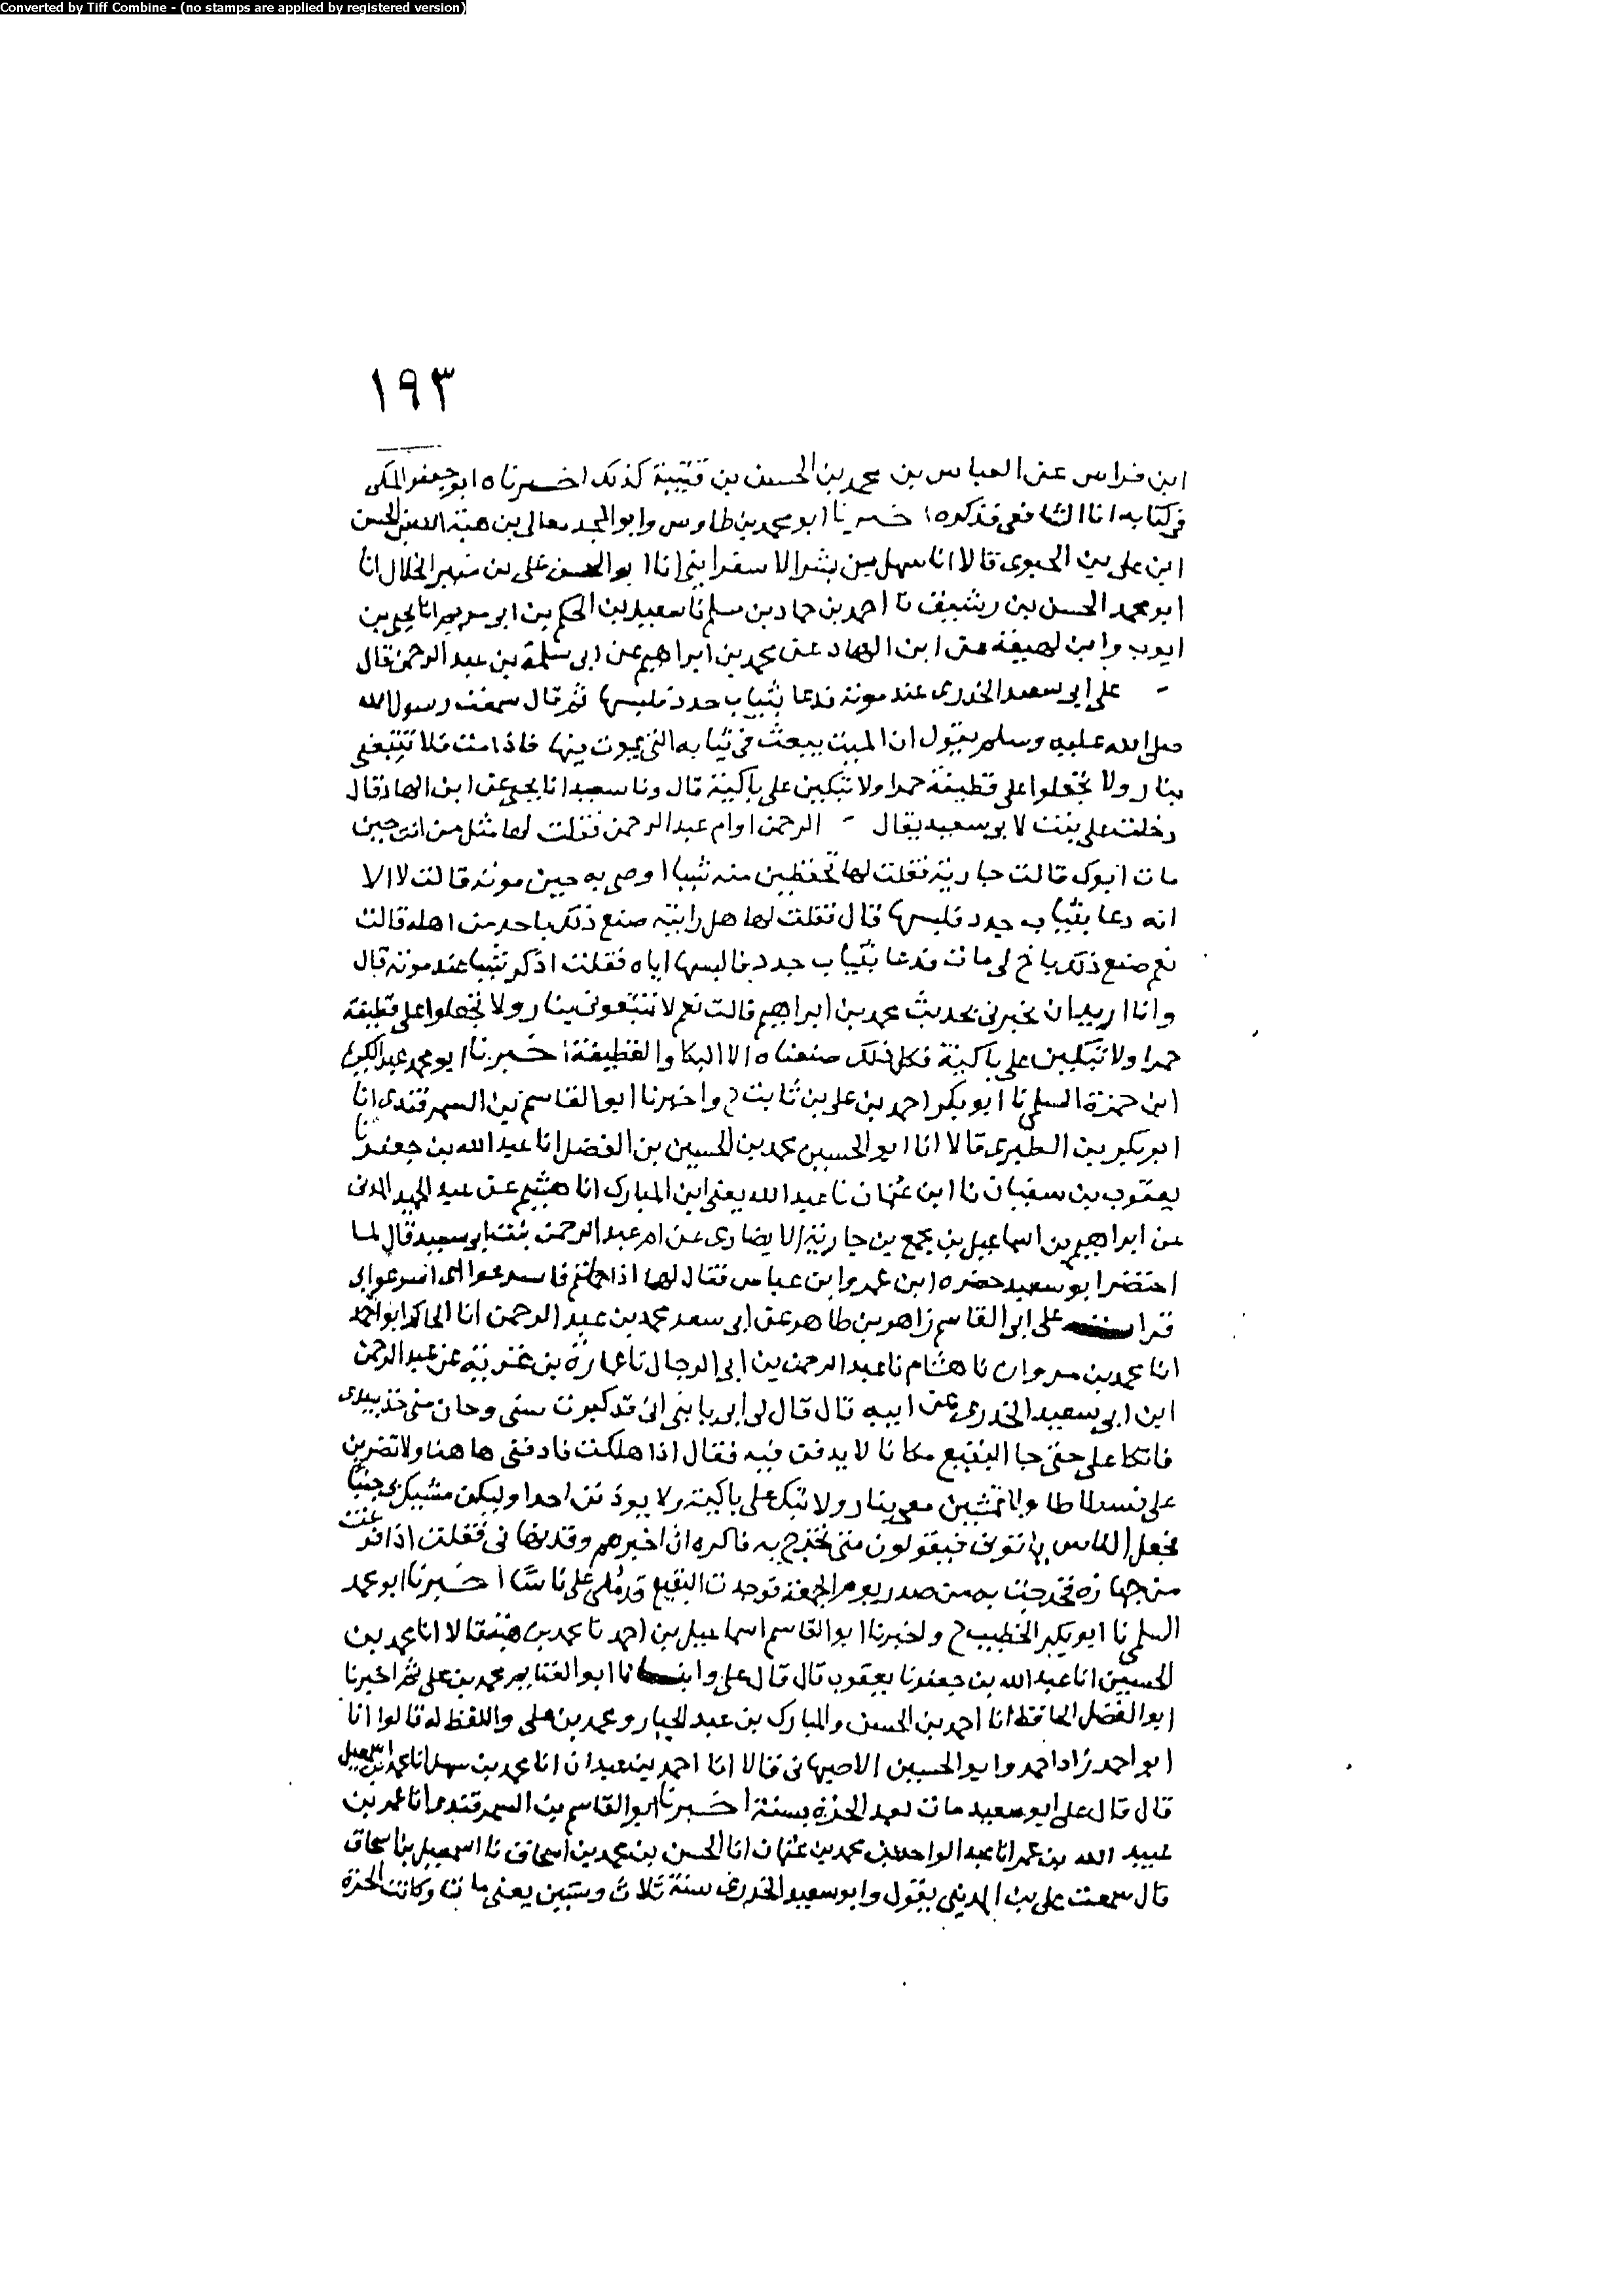 Converted by Tiff Combine - (no stamps are applied by registered version)
١٩٣
ابن فراس عن العباس بن محمد بن الحسن بن قتيبة كذلك اخبرناه ابو جعفر المكى
فى كتابه انا الشافعى فذكره اخبرنا ابو محمد بن طاوس وابو المجد معالى بن هبة الله بن الحسن
ابن على بن الحبوى قالا انا سهل بن بشر الاسفراينى انا ابو الحسن على بن منير الخلال انا
ابو محمد الحسن بن رشيق نا احمد بن حماد بن مسلم نا سعيد بن الحكم بن ابى مريم انا يحيى بن
ايوب وابن لهيعة عن ابن الهاد عن محمد بن ابراهيم عن ابى سلمة بن عبد الرحمن قال
على ابى سعيد الخدرى عند موته فدعا بثياب جدد فلبسها ثم قال سمعت رسول الله
صلى الله عليه وسلم يقول ان الميت يبعث فى ثيابه التى يموت فيها فاذا مت فلا تتبعنى
بنار ولا تجعلوا على قطيفة حمرا ولا تبكين على باكية قال ونا سعيد انا يحيى عن ابن الهاد قال
دخلت على بنت لابو سعيد يقال - الرحمن او ام عبد الرحمن فقلت لها مثل من انت حين
مات ابوك قالت جارية فقلت لها تحفظين منه شيا اوصى به حين موته قالت لا الا
انه دعا بثياب جدد فلبسها قال فقلت لها هل رايته صنع ذلك باحد من اهله قالت
نعم صنع ذلك باخ لى مات فدعا بثياب جدد فالبسها اياه فقلت اذكر شيا عند موته قال
وانا اريد ان تخبرنى بحديث محمد بن ابراهيم قالت نعم لا تتبعونى بنار ولا تجعلوا على قطيفة
حمرا ولا تبكين على باكية فكل ذلك صنعناه الا البكا والقطيفة اخبرنا ابو محمد عبد الكريم
ابن حمزة السلمى نا ابو بكر احمد بن على بن ثابت ح واخبرنا ابو القاسم بن السمرقندى انا
ابو بكر بن الطبرى قالا انا ابو الحسين محمد بن الحسين بن الفضل انا عبد الله بن جعفر نا
يعقوب بن سفيان نا ابن عثمان نا عبد الله يعنى ابن المبارك انا هشيم عن عبد الحميد المدنى
عن ابراهيم بن اسماعيل بن مجمع بن جارية الانصارى عن ام عبد الرحمن بنت ابى سعيد قال لما
احتضر ابو سعيد حضره ابن عمر وابن عباس فقال لهما اذا حملتم فاسرعوا اى اسرعوا بى
قرا على ابى القاسم زاهر بن طاهر عن ابى سعد محمد بن عبد الرحمن انا الحاكم ابو احمد
انا محمد بن مروان نا هشام نا عبد الرحمن بن ابى الرجال نا عمارة بن غزية عن عبد الرحمن
ابن ابى سعيد الخدرى عن ابيه قال قال لى ابى يا بنى انى قد كبرت سنى وحان منى خذ بيدى
فاتكا على حتى جا البقيع مكانا لا يدفن فيه فقال اذا هلكت فادفنى ها هنا ولا تضربن
على فسطاطا ولا تمشين معى بنار ولا تبك على باكية ولا يوذنن احدا وليكن مشيك بى خببا
فجعل الناس فيقولون متى تخرج به فاكره ان اخبرهم وقد نهانى فقلت اذا فرغت
من جهازه فخرجت به من صدر يوم الجمعة فوجدت البقيع قد ملى على ناسا اخبرنا ابو محمد
السلمى نا ابو بكر الخطيب ح واخبرنا ابو القاسم اسماعيل بن احمد نا محمد بن هبة قالا انا محمد بن
الحسين انا عبد الله بن جعفر نا يعقوب قال قال على انا ابو الغنايم محمد بن على ثم اخبرنا
ابو الفضل الحافظ انا احمد بن الحسن والمبارك بن عبد الجبار ومحمد بن على واللفظ له قالوا انا
ابو احمد زاد احمد وابو الحسين الاصبهانى قالا انا احمد بن عبدان انا محمد بن سهل انا محمد بن اسمعيل
قال قال على ابو سعيد مات بعد الحرة بسنة اخبرنا ابو القاسم بن السمرقندى انا عمر بن
عبيد الله بن عمر انا عبد الواحد بن محمد بن عثمان انا الحسن بن محمد بن اسحاق نا اسمعيل بن اسحاق
قال سمعت على بن المدينى يقول وابو سعيد الخدرى سنة ثلاث وستين يعنى مات وكانت الحرة